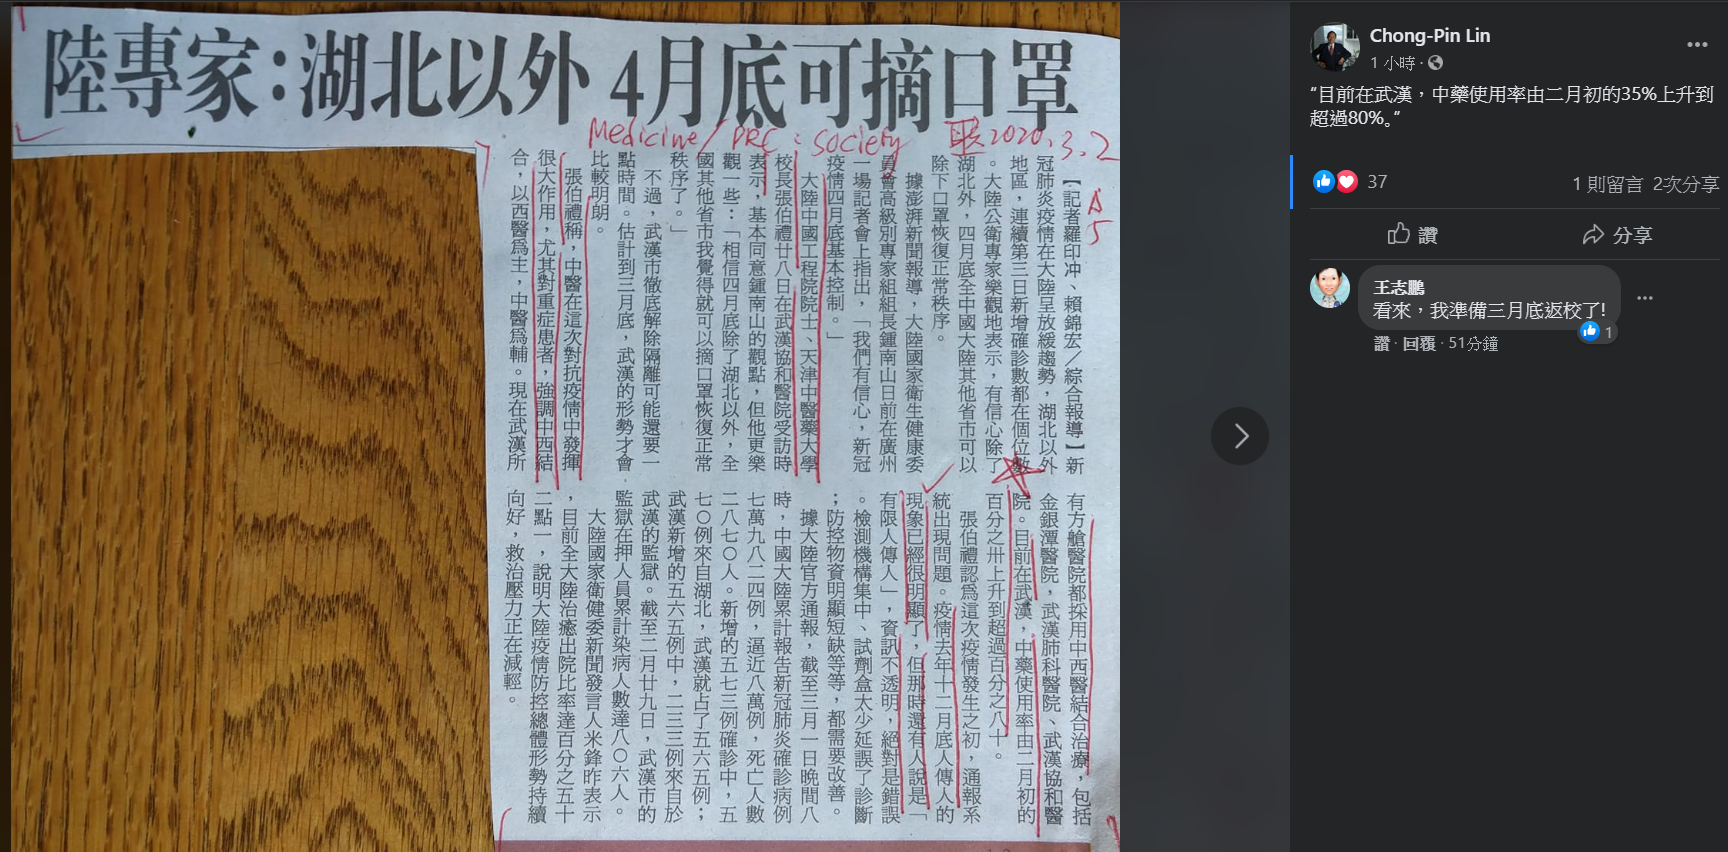 陸專家：湖北以外 4月底可摘口罩
Medicine/PRC : society 聯2020.3.2
A5
【記者羅印冲、賴錦宏／綜合報導】新
冠肺炎疫情在大陸呈放緩趨勢，湖北以外
地區，連續第三日新增確診數都在個位數
。大陸公衛專家樂觀地表示，有信心除了
湖北外，四月底全中國大陸其他省市可以
除下口罩恢復正常秩序。
據澎湃新聞報導，大陸國家衛生健康委
員會高級別專家組組長鍾南山日前在廣州
一場記者會上指出，「我們有信心，新冠
疫情四月底基本控制。」
大陸中國工程院院士、天津中醫藥大學
校長張伯禮廿八日在武漢協和醫院受訪時
表示，基本同意鍾南山的觀點，但他更樂
觀一些：「相信四月底除了湖北以外，全
國其他省市我覺得就可以摘口罩恢復正常
秩序了。」
不過，武漢市徹底解除隔離可能還要一
點時間。估計到三月底，武漢的形勢才會
比較明朗。
張伯禮稱，中醫在這次對抗疫情中發揮
很大作用，尤其對重症患者，強調中西結
合，以西醫為主，中醫為輔。現在武漢所
有方艙醫院都採用中西醫結合治療，包括
金銀潭醫院，武漢肺科醫院、武漢協和醫
院。目前在武漢，中藥使用率由二月初的
百分之卅上升到超過百分之八十。
張伯禮認為這次疫情發生之初，通報系
統出現問題。疫情去年十二月底人傳人的
現象已經很明顯了，但那時還有人說是「
有限人傳人」，資訊不透明，絕對是錯誤
。檢測機構集中、試劑盒太少延誤了診斷
；防控物資明顯短缺等等，都需要改善。
據大陸官方通報，截至三月一日晚間八
時，中國大陸累計報告新冠肺炎確診病例
七萬九八二四例，逼近八萬例，死亡人數
二八七〇人。新增的五七三例確診中，五
七〇例來自湖北，武漢就占了五六五例；
武漢新增的五六五例中，二三三例來自於
武漢的監獄。截至二月廿九日，武漢市的
監獄在押人員累計染病人數達八〇六人。
大陸國家衛健委新聞發言人米鋒昨表示
，目前全大陸治癒出院比率達百分之五十
二點一，說明大陸疫情防控總體形勢持續
向好，救治壓力正在減輕。
Chong-Pin Lin
1 小時 ·
“目前在武漢，中藥使用率由二月初的35%上升到
超過80%。”
37
1 則留言 2次分享
讚 分享
王志鵬
看來，我準備三月底返校了!
1
讚 · 回覆 · 51分鐘